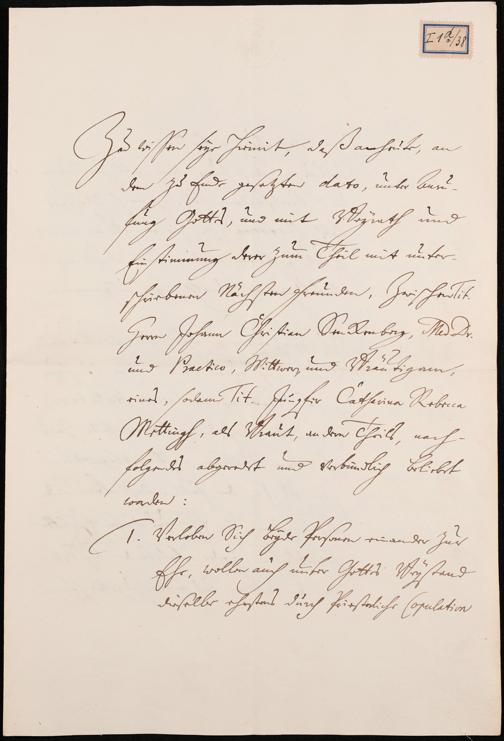 I 1 d/38
Zu wissen seye hiemit, daß anheute, an
dem zu Ende gesetzten dato, unter Anru-
fung Gottes, und mit Beyrath und
Einstimmung derer zum Theil mit unter-
schriebenen Nächsten Freunden, zwischen Tit.
Herrn Johann Christian Senckenberg, Med. Dr.
und Practico, Wittwer und Bräutigam,
eines, sodann Tit. Jungfr Catharina Rebecca
Mettingh, als Braut, andern Theils, nach-
folgendes abgeredet und verbindlich beliebt
worden:
1. Verloben Sich beyde Personen einander zur
Ehe, wollen auch unter Gottes Beystand
dieselbe ehestens durch Priesterliche Copulation